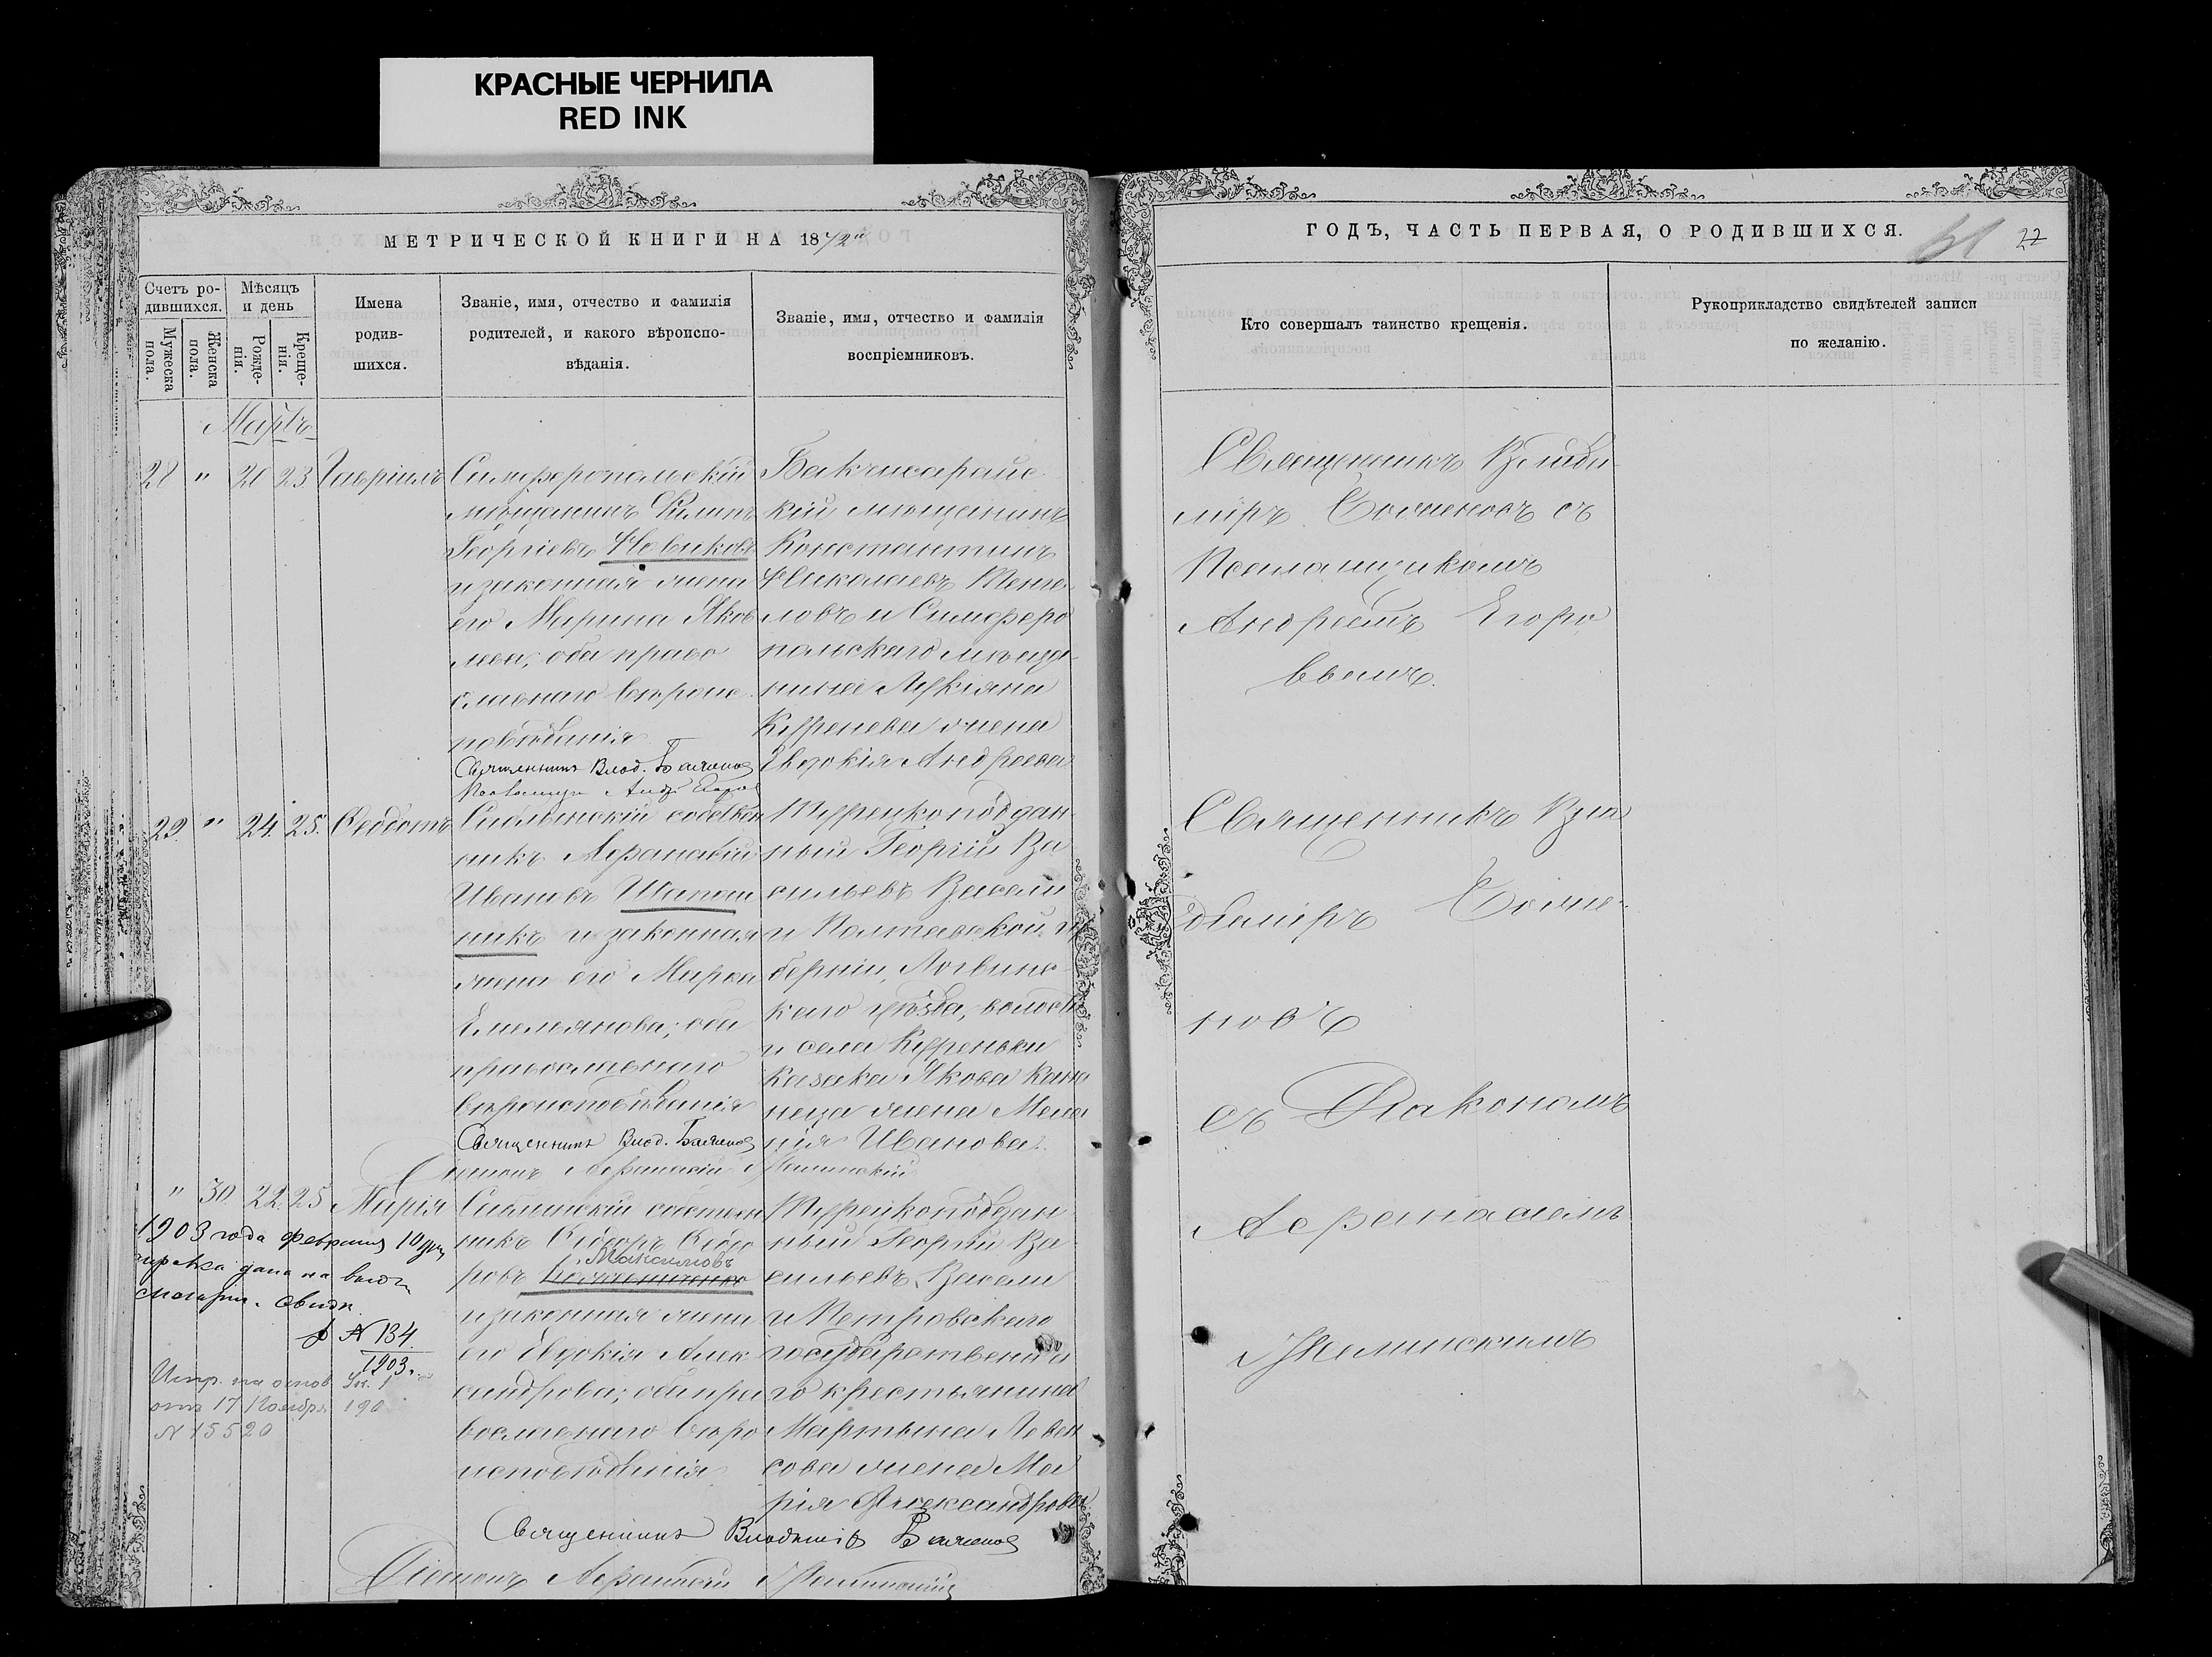 КРАСНЫЕ ЧЕРНИЛА
RED INK
МЕТРИЧЕСКОЙ КНИГИ НА 18
Счетъ ро-
дившихся.
Мужеска
пола.
Женска
пола.
Мѣсяцъ
и день
Рожде-
нія.
Креще-
нія.
Имена
родив-
шихся.
Званіе, имя, отчество и фамилія
родителей, и какого вѣроиспо-
вѣданія.
Званіе, имя, отчество и фамилія
воспріемниковъ.
Мартъ
28 " 20 23 Гавріилъ
Симферопольскій
мѣщанинъ Филипъ
Георгіевъ Новиковъ
и законная жена
его Марина Яков
лева; оба право
славнаго вѣроис
повѣданія
Священникъ Влад. Баженов
Бакчисарайс
кій мѣщанинъ
Константинъ
Николаевъ
ловъ и Симферо
польскаго мѣща
нина Лукіяна
Куренева жена
Евдокія Андреева
29 " 24 25 Феодотъ
Саблынскій собствен
никъ Афанасій
Ивановъ Шапош
никъ и законная
жена его Марѳа
Емельянова; оба
православнаго
вѣроисповѣданія
Священникъ Влад. Баженов
Діаконъ Афанасій
Турецкоподдан
ный Георгій Ва
сильевъ Васели
и Полтавской гу
берніи, Лохвинс
каго уѣзда, волости
и села Куреньки
казака Якова Кана
неца жена Мела
нія Иванова
" 30 22 25 Марія
Саблинскій собствен
никъ Ѳедоръ Ѳедо
ровъ
Максимовъ
и законная жена
его Евдокія Алек
сандрова; оба пра
вославнаго вѣро
исповѣданія
Турецкоподдан
ный Георгій Ва
сильевъ Васели
и Петровскаго
государственна
го крестьянина
Мартына Леван
сова жена Ма
рія Александрова
Священникъ Владиміръ Баженов
Діаконъ Афанасій
1903 года февраля 10 дня
справка дана на
метрич. свид.
№ 134
1903 г.
Испр. на основ. Ук.
отъ 17 Ноября 190
№ 15520
ГОДЪ, ЧАСТЬ ПЕРВАЯ, О РОДИВШИХСЯ.
22
Кто совершалъ таинство крещенія.
Рукоприкладство свидѣтелей записи
по желанію.
Священникъ Влади
міръ Боженовъ съ
Псаломщикомъ
Андреемъ Егоро
вымъ.
Священникъ Вла
диміръ Божие-
новъ
съ Діакономъ
Афанасіемъ